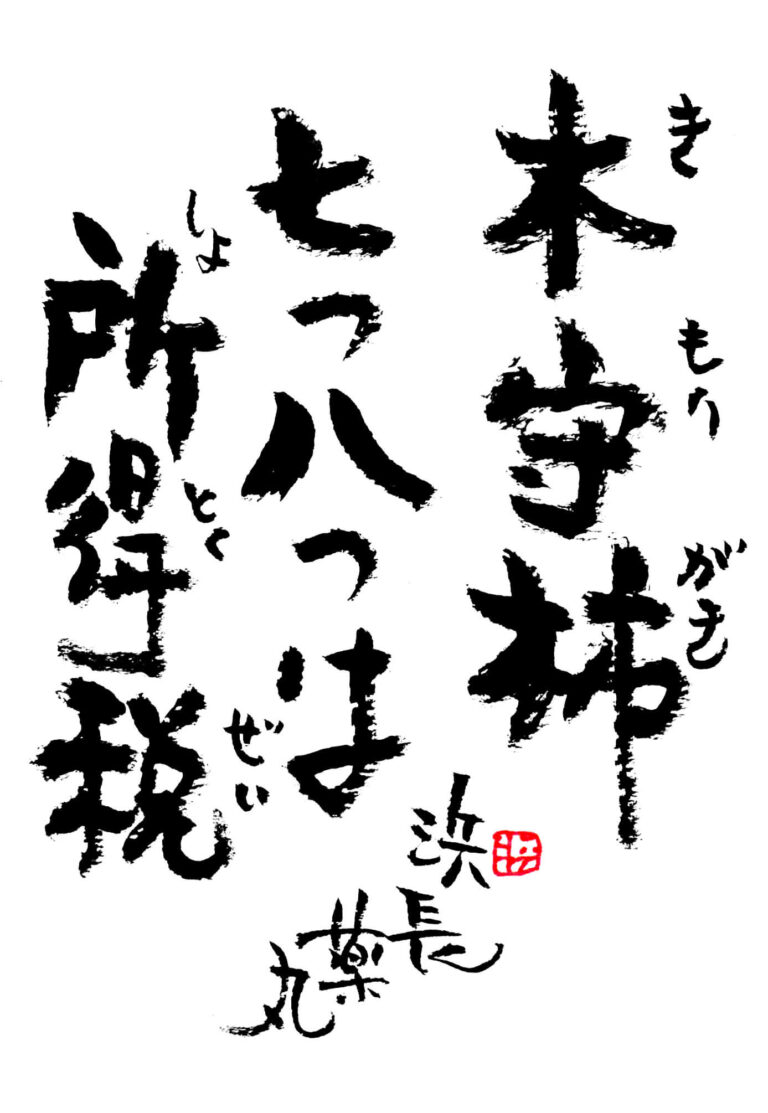 木守柿
きもりがき
七つ八つは
所得税
しょとくぜい
浜
長
薬
丸